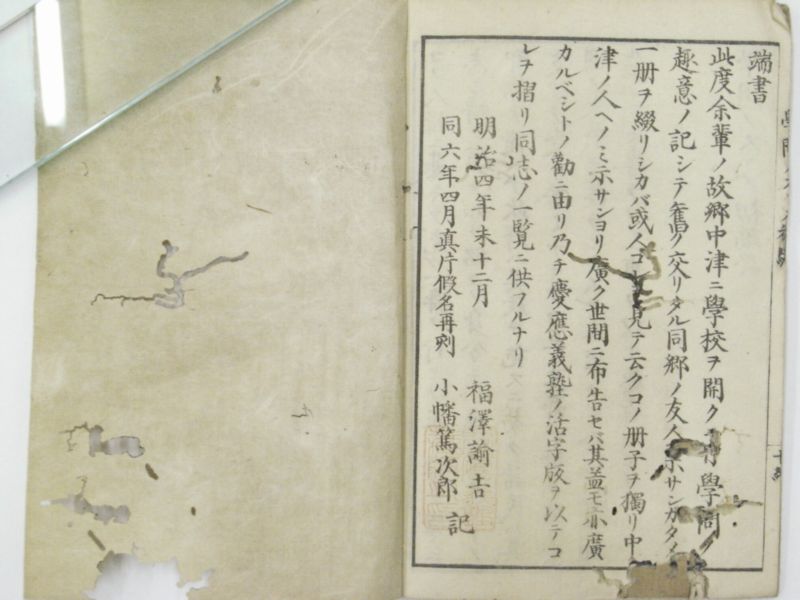 端書
此度余輩ノ故郷中津ニ學校ヲ開クニ付學問ノ
趣意ノ記シテ舊ク交リタル同郷ノ友人 示サンガタメ
一册ヲ綴リシカバ或人コレ 見テ云クコノ册子ヲ獨リ中
津ノ人ヘノミ示サンヨリ廣ク世間ニ布告セバ其益モ亦廣
カルベシトノ勸ニ由リ乃チ慶應義塾ノ活字版ヲ以テコ
レヲ摺リ同志ノ一覽ニ供フルナリ
明治四年未十二月 福澤諭吉
同六年四月真片假名再刻 小幡篤次郎 記